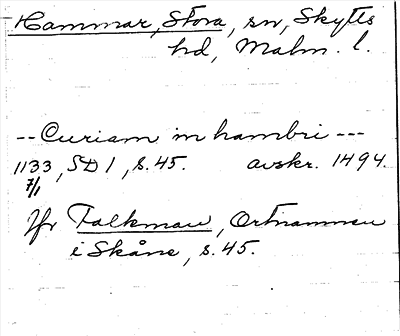 Hammar, Stora, sn, Skytts
hd, Malm. l.
-- Curiam in hambri ---
1133, SD 1, s. 45. avskr. 1494.
7/1
Jfr Falkman, Ortnamnen
i Skåne, s. 45.